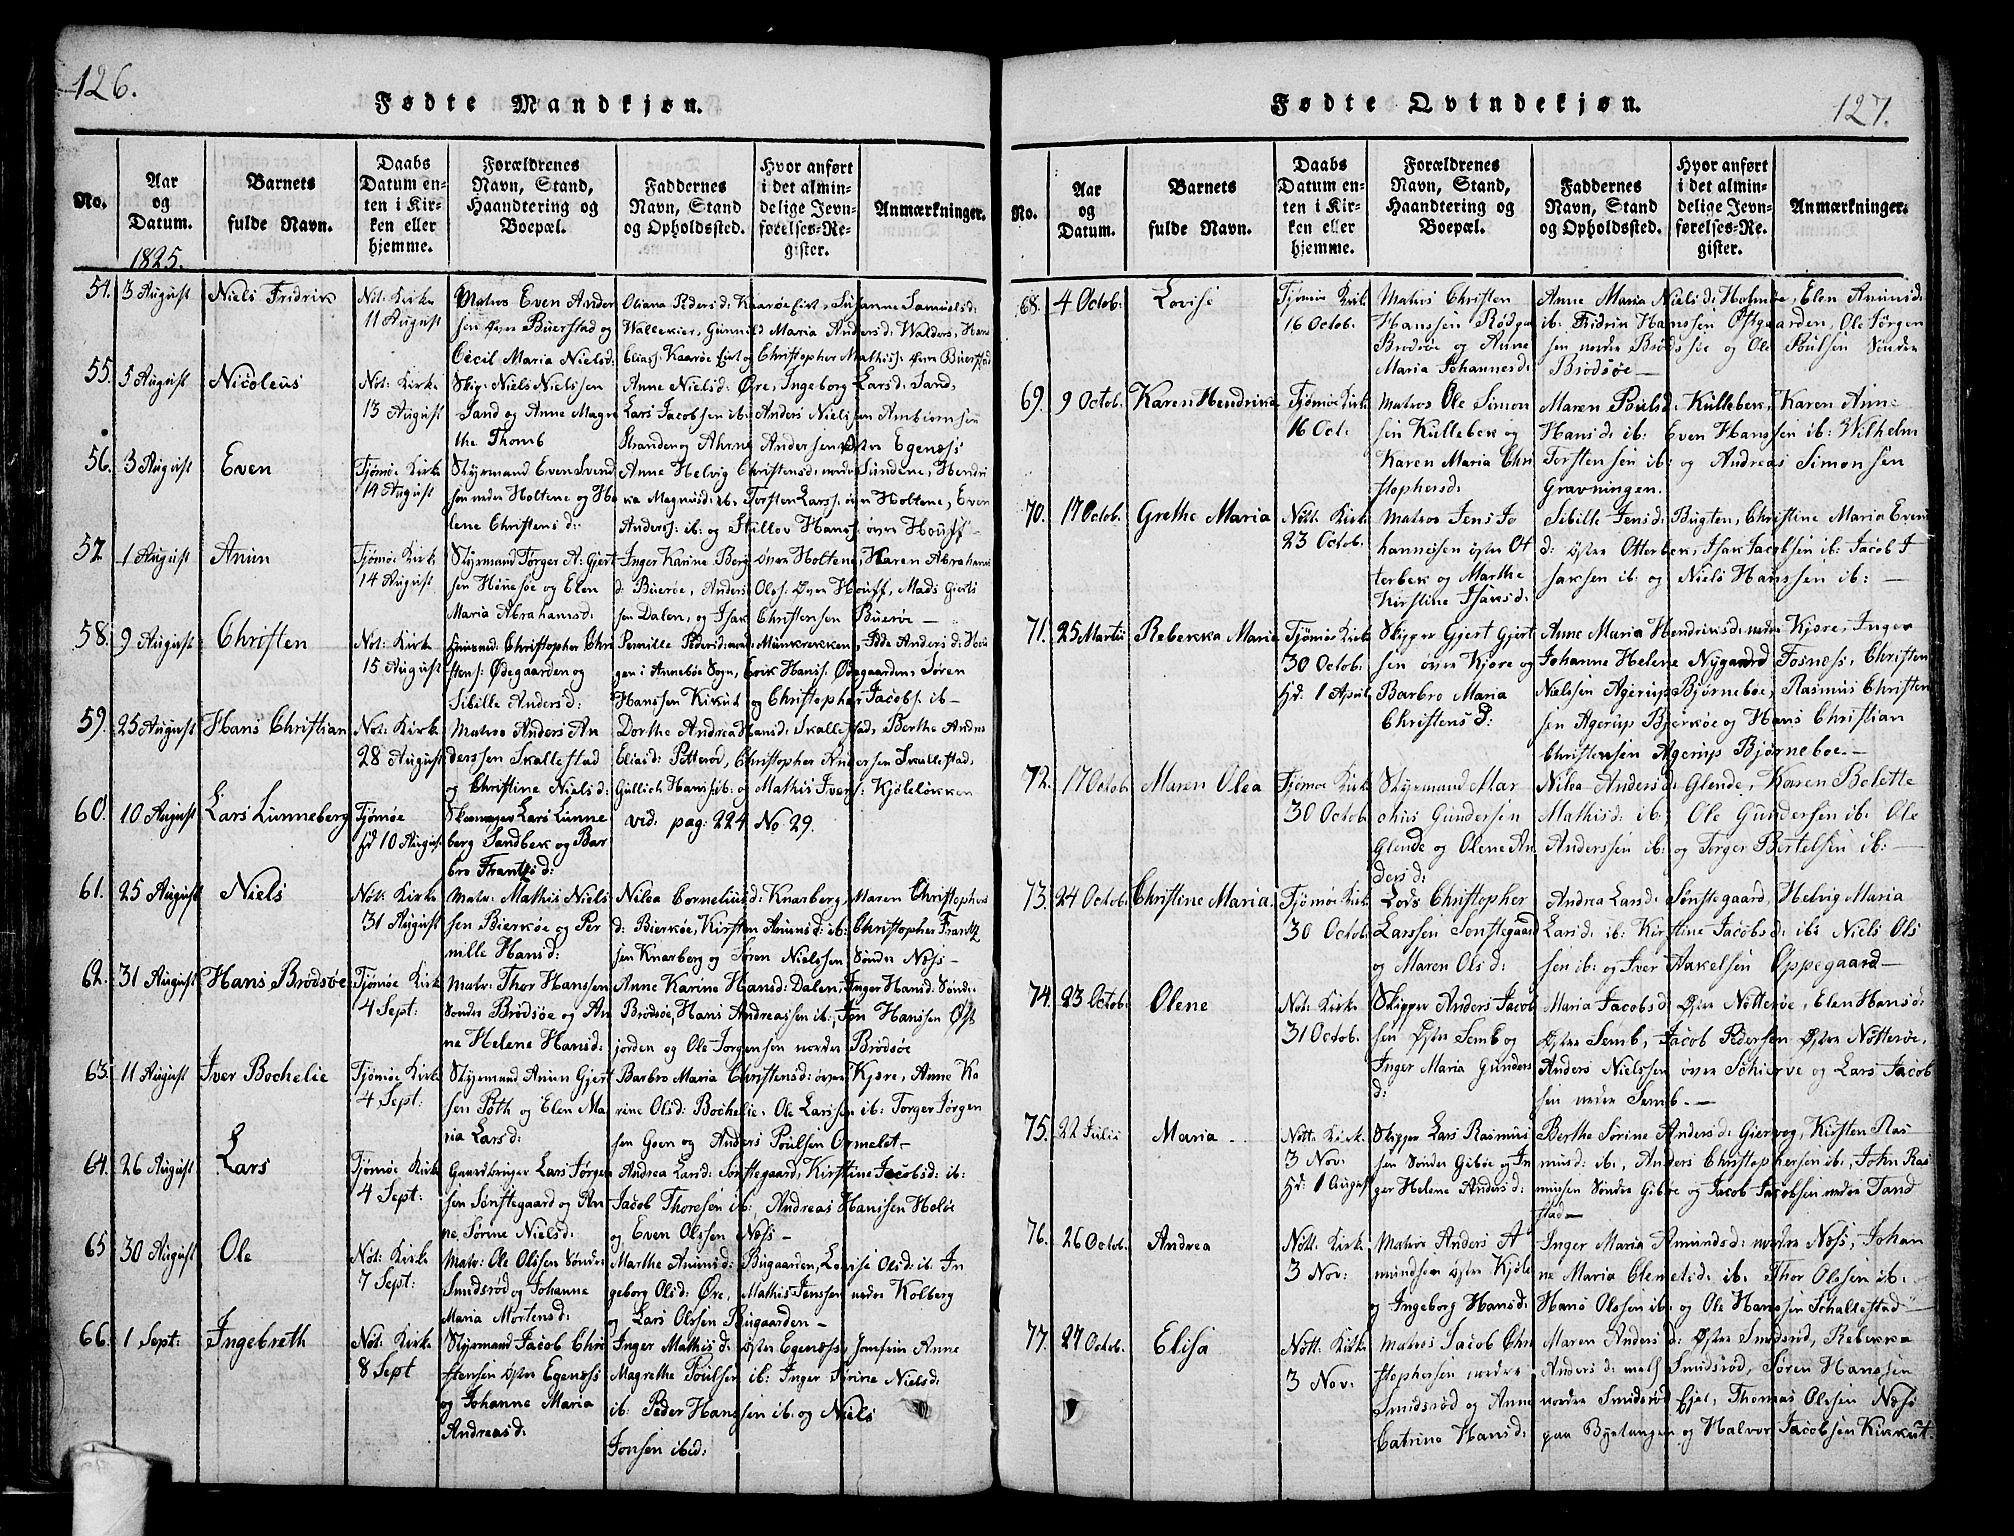 126.
Fødte Mandkjøn.
No.
Aar
og
Datum.
1825.
Barnets
fulde Navn.
Daabs
Datum en-
ten i Kir-
ken eller
hjemme.
Forældrenes
Navn, Stand,
Haandtering og
Boepæl.
Faddernes
Navn, Stand
og Opholdssted.
Hvor anført
i det almin-
delige Jevn-
førelses-Re-
gister.
Anmærkninger.
54. 3 August Niels Fridrik
Not: Kirke
11 August
Matros Even Ander
sen Øvre Buerstad og
Cecil Maria Nielsd:
Oliana Pedersd: Kaarøe Eiet, Susanne Samuelsd:
Wallekier, Gunnild Maria Andersd: Walders, Hans
Elias: Kaarøe Eiet og Christopher Mathis: Buerstad
55. 5 August Nicoleus
Not: Kirke
13 August
Skip: Niels Nielssen
Sand og Anne Magre
the Thomb
Anne Nielsd: Øre, Ingeborg Larsd: Sand,
Lars Jacobsen ib: Anders Nielsen Ambiørnsen
Stranden og Anders Andersen Østre Egenæss
56. 3 August Even
Tjømøe Kirke
14 August
Styrmand Even Svend
sen nedre Holtene og He
lene Christensd:
Anne Helvig Christensd: nordre Sundene, Hendri
ka Magnusd: ib. Torsten Larss: øvre Holtene, Even
Anderss: ib: og Stillov Hanss: øvre Houff
57. 1 August Anun
Tjømøe Kirke
14 August
Styrmand Torger A: Gjert
sen Hønesøe og Elen
Maria Abrahamsd:
Inger Karine Berg øvre Holtene, Karen Abraham
d: Buerøe, Anders Olss: Øvre Houff, Mads Gierts
sen Dalen, og Isak Christensen Buerøe —
58. 9 August Christen
Not: Kirke
15 August
Christopher Chri
stens: Ødegaarden og
Sibille Andersd:
Pernille Pedersd: Munkerekken, Andersd: Hou
gen i Annebøe Sogn, Erik Hanss: Ødegaarden, Søren
Hanssen Kikut og Christopher Jacobs: ib —
59. 25 August Hans Christian
Not: Kirke
28 August
Matros Anders An
derssen Skallestad
og Christine Nielsd:
Dorthe Andrea Hansd: Skallestad, Berthe Andrea
Eliasd: Potterød, Christopher Andersen Skallestad,
Gullich Hans: ib: og Mathis Ivers: Kjøleløkken
60. 10 August Lars Lunneberg
Tjømøe
Hd 10 August
Lars Lunne
berg Sandbek og Bar
bro Frantzd:
vid: pag: 224 No 29.
61. 25 August Niels
Nøt: Kirke
31 August
Matr: Mathis Niels
sen Bierkøe og Per
nille Hansd:
Nilea Corneliusd: Knarberg, Maren Christophers
d: Bierkøe, Kirsten Anunsd: ib: Christopher Frantz
sen Knarberg og Søren Nielssen Søndre Næss —
62. 31 August Hans Brødsøe
Tjømøe Kirke
4 Sept:
Matr: Thor Hanssen
Søndre Brødsøe og An
ne Helene Hansd:
Anne Karine Hansd: Dalen, Inger Hansd: Søndr:
Brødsøe, Hans Andreassen ib:, Jon Hanssen Øst
jorden og Ole Jørgensen nordre Brødsøe
63. 11 August Iver Bochelie
Tjømøe Kirke
4 Sept:
Styrmand Anun Gjert
sen Poth og Elen Ma
ria Larsd:
Barbro Maria Christensd: øvre Kjøre, Anne Ka
rine Olsd: Bochelie. Ole Larssen ib: Torger Jørgen
sen Goen og Anders Poulsen Ormelet —
64. 26 August Lars
Tjømøe Kirke
4 Sept:
Gaardbruger Lars Jørgen
sen Sønstegaard og An
ne, Sørine Nielsd:
Andrea Larsd: Sønstegaard, Kirstine Jacobsd: ib:
Jacob Thoresen ib:, Andreas Hanssen Holøe
og Even Olssen Næss —
65 30 August Ole
Not: Kirke
7 Sept:
Matr: Ole Olssen Søndre
Smidsrød og Johanne
Maria Mortensd:
Marthe Anunsd: Bugaarden, Lovise Olsd: ib: In
geborg Olsd: Øre, Mathis Jenssen nedre Kolberg
og Lars Olssen Bugaarden —
66. 1 Sept: Ingebreth
Nøt: Kirke
8 Sept
Styrmand Jacob Chri
stensen Østre Egenæss
og Johanne Maria
Andreasd:
Inger Mathisd: Østre Egenæss, Jomfrue Anne
Magrethe Poulsen ib: Inger Sørine Nielsd:
ib: Peder Hanssen ib: og Niels
Jonsen ibid:
127.
Fødte Qvindekjøn.
No.
Aar
og
Datum.
Barnets
fulde Navn.
Daabs
Datum en-
ten i Kir-
ken eller
hjemme.
Forældrenes
Navn, Stand,
Haandtering og
Boepæl.
Faddernes
Navn, Stand
og Opholdssted.
Hvor anført
i det almin-
delige Jevn-
førelses-Re-
gister.
Anmærkninger.
68. 4 Octob: Lovise
Tjømøe Kirk:
16 Octob.
Matros Christen
Hanssen Rødga
Brødsøe og Anne
Maria Johannesd:
Anne Maria Nielsd: Holmøe, Elen Anunsd:
ib. Fridrin Hanssen Østgaarden, Ole Jørgen
sen nordre Brødsøe og Ole Poulsen Søndre
Brødsøe —
69. 9 Octob: Karen Hendrine
Tjømøe Kirk:
16 Oct:
Matros Ole Simon
sen Kullebek og
Karen Maria Chri
stophersd:
Maren Poulsd: Kullebek, Karen Anne
Hansd: ib: Even Hanssen ib: Wilhelm
Torstensen ib: og Andreas Simonsen
Gravningen.
70. 17 Octob. Grethe Maria
Nött: Kirk:
23 Octob.
Matros Jens Jo
hannesen østre Ot
terbek og Marthe
Kirstine Isaksd:
Sibille Jensd: Bugten, Christine Maria Evens
d: østre Otterbek, Isak Jacobsen ib: Jacob I
saksen ib: og Niels Hanssen ib: —
71. 25 Martii Rebekka Marie
Tjømøe Kirk:
30 Octob.
Hd: 1 April
Skipper Gjert Gjert
sen øvre Kjøre og
Barbro Maria
Christensd:
Anne Maria Hendriksd: nedre Kjøre, Inger
Johanne Helene Nygaard Fosness, Christen
Nielssen Agerup Bjørnebøe, Rasmus Christen
sen Agerup Bjerkøe og Hans Christian
Christensen Agerup Bjørneboe. —
72. 17 Octob: Maren Olea
Tjømøe Kirk:
30 Octob
Styrmand Mar
chus Gundersen
Glende og Olene An
dersd:
Nilea Andersd: Glende, Karen Bolette
Mathisd: ib: Ole Gundersen ib: Ole
Anderssen ib: og Torger Bertelsen ib: —
73. 24 Octob: Christine Maria.
Tjømøe Kirk:
30 Octob:
Lods Christopher
Larssen Sønstegaard
og Maren Olsd:
Andrea Larsd: Sønstegaard, Helvig Maria
Larsd: ib: Kirstine Jacobsd: ib: Niels Ols
sen ib: og Iver Aakelsen Oppegaard —
74. 23 Octob: Olene
Not: Kirk:
31 Octob.
Skipper Anders Jacob
sen Østre Semb og
Inger Maria Gunders
d:
Maria Jacobsd: Østre Nötterøe, Elen Hansd:
østre Semb, Jacob Pedersen Østre Nötterøe,
Anders Nielssen øvre Schierve og Lars Jacob
sen nedre Semb. —
75. 22 Julii Maria
Nött: Kirk:
3 Nov:
Hd: 1 August
Skipper Lars Rasmus
sen Søndre Gibøe og In
ger Helene Andersd:
Berthe Sørine Andersd: Gierveg, Kirsten Ras
musd: ib:, Anders Christophersen ib:, John Ras
mussen Søndre Gibøe og Jacob Jacobsen nedre Tand
stad —
76. 26 Octob: Andrea
Nött: Kirk:
3 Nov:
Matros Anders A
mundsen østre Kjøle
og Ingeborg Hansd:
Inger Maria Amundsd: nordre Næss, Johan
ne Maria Clemetsd: ib: Thor Olssen ib:
Hans Olssen ib: og Ole Hanssen Schallestad —
77. 27 Octob. Elisa
Nött: Kirk:
3 Nov:
Matros Jacob Chri
stophersen nordre
Smidsrød og Anne
Catrine Hansd:
Maren Andersd: Østre Smidsrød, Rebekka
Andersd: mell Smidsrød, Søren Hanssen
nordre Smidsrød Ejet, Thomas Olssen Næss
paa Byetangen og Halvor Jacobsen Kikkut.